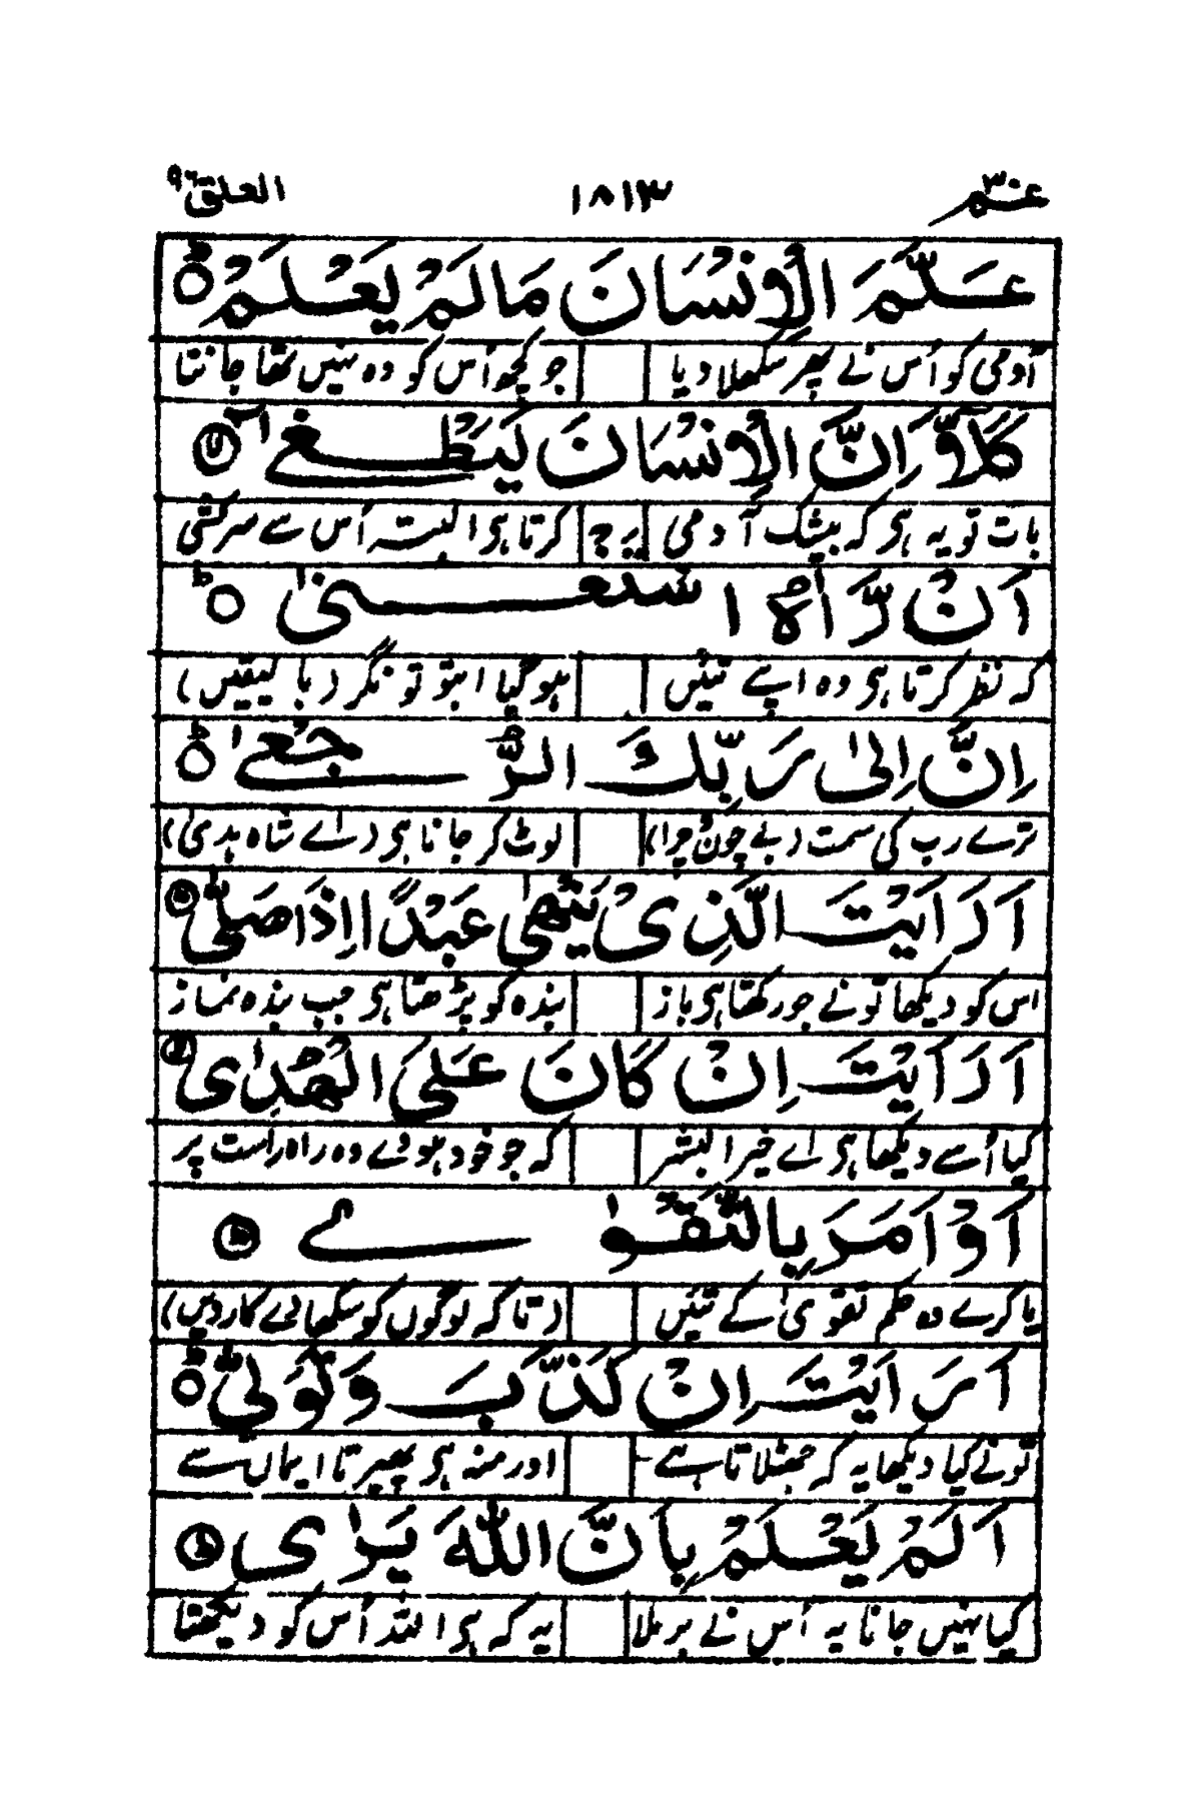 عم ۳۰ ۱۸۱۳ العلق ۹۶
عَلَّمَ الْاِنْسَانَ مَا لَمْ يَعْلَمْ ؕ
آدمی کو اُس نے پھر سکھلا دیا جو کچھ اُس کو وہ نہیں تھا جانتا
كَلَّاۤ اِنَّ الْاِنْسَانَ لَيَطْغٰۤى
بات تو یہ ہی کہ بیشک آدمی کرتا ہی البتہ اُس سے سرکشی
اَنْ رَّاٰهُ اسْتَغْنٰى ؕ
کہ نظر کرتا ہی وہ اپنے تئیں ہو گیا ابتو تونگر (با یقیں)
اِنَّ اِلٰى رَبِّكَ الرُّجْعٰى ؕ
ترے رب کی سمت (بے چون و چرا) لوٹ کر جانا ہی (اے شاہ ہدیٰ)
اَرَاَيْتَ الَّذِىْ يَنْهٰى عَبْدًا اِذَا صَلّٰى ؕ
اس کو دیکھا تو نے جو رکھتا ہی باز بندہ کو پڑھتا ہی جب بندہ نماز
اَرَاَيْتَ اِنْ كَانَ عَلَى الْهُدٰى
کیا اُسے دیکھا ہی اے خیر البشر کہ جو خود ہووے وہ راہ راست پر
اَوْ اَمَرَ بِالتَّقْوٰى ؕ
یا کرے وہ حکم تقویٰ کے تئیں (تا کہ لوگوں کو سکھاوے کار دیں)
اَرَاَيْتَ اِنْ كَذَّبَ وَتَوَلّٰى ؕ
تو نے کیا دیکھا یہ کہ جھٹلاتا ہے اور منہ ہی پھیرتا ایماں سے
اَلَمْ يَعْلَمْ بِاَنَّ اللّٰهَ يَرٰى ؕ
کیا نہیں جانا یہ اُس نے برملا یہ کہ ہی اللہ اُس کو دیکھتا